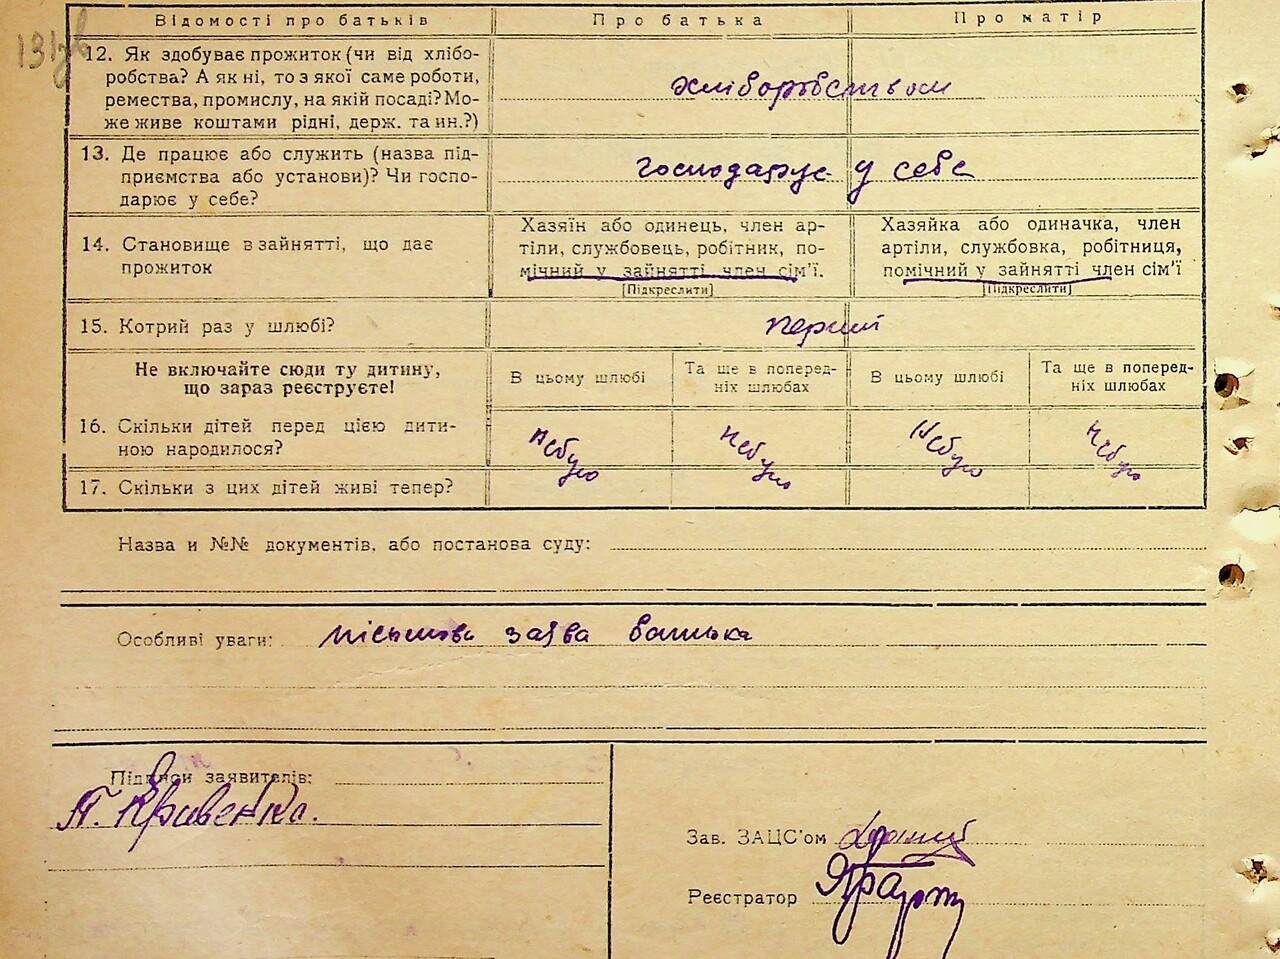 131зв
Відомості про батьків Про батька Про матір
12. Як здобуває прожиток (чи від хлібо-
робства? А як ні, то з якої саме роботи,
ремества, промислу, на якій посаді? Мо-
же живе коштами рідні, держ. та ин.?)
хліборобством
13. Де працює або служить (назва під-
приємства або установи)? Чи госпо-
дарює у себе?
господарує у себе
14. Становище в зайнятті, що дає
прожиток
Хазяїн або одинець, член ар-
тіли, службовець, робітник, по-
мічний у зайнятті член сім'ї.
[Підкреслити]
Хазяйка або одиначка, член
артіли, службовка, робітниця,
помічний у зайнятті член сім'ї
[Підкреслити]
15. Котрий раз у шлюбі? перший
Не включайте сюди ту дитину,
що зараз реєструєте!
В цьому шлюбі
Та ще в поперед-
ніх шлюбах
В цьому шлюбі
Та ще в поперед-
ніх шлюбах
16. Скільки дітей перед цією дити-
ною народилося?
Небуло Небуло Небуло Небуло
17. Скільки з цих дітей живі тепер?
Назва и №№ документів, або постанова суду:
Особливі уваги: письмова заява батька
Підписи заявителів:
П. Кривенко.
Зав. ЗАЦС'ом
Реєстратор